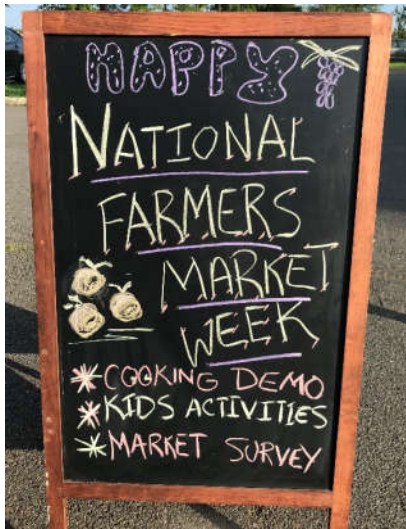 HAPPY
NATIONAL
FARMERS
MARKET
WEEK
* COOKING DEMO
* KIDS ACTIVITIES
* MARKET SURVEY